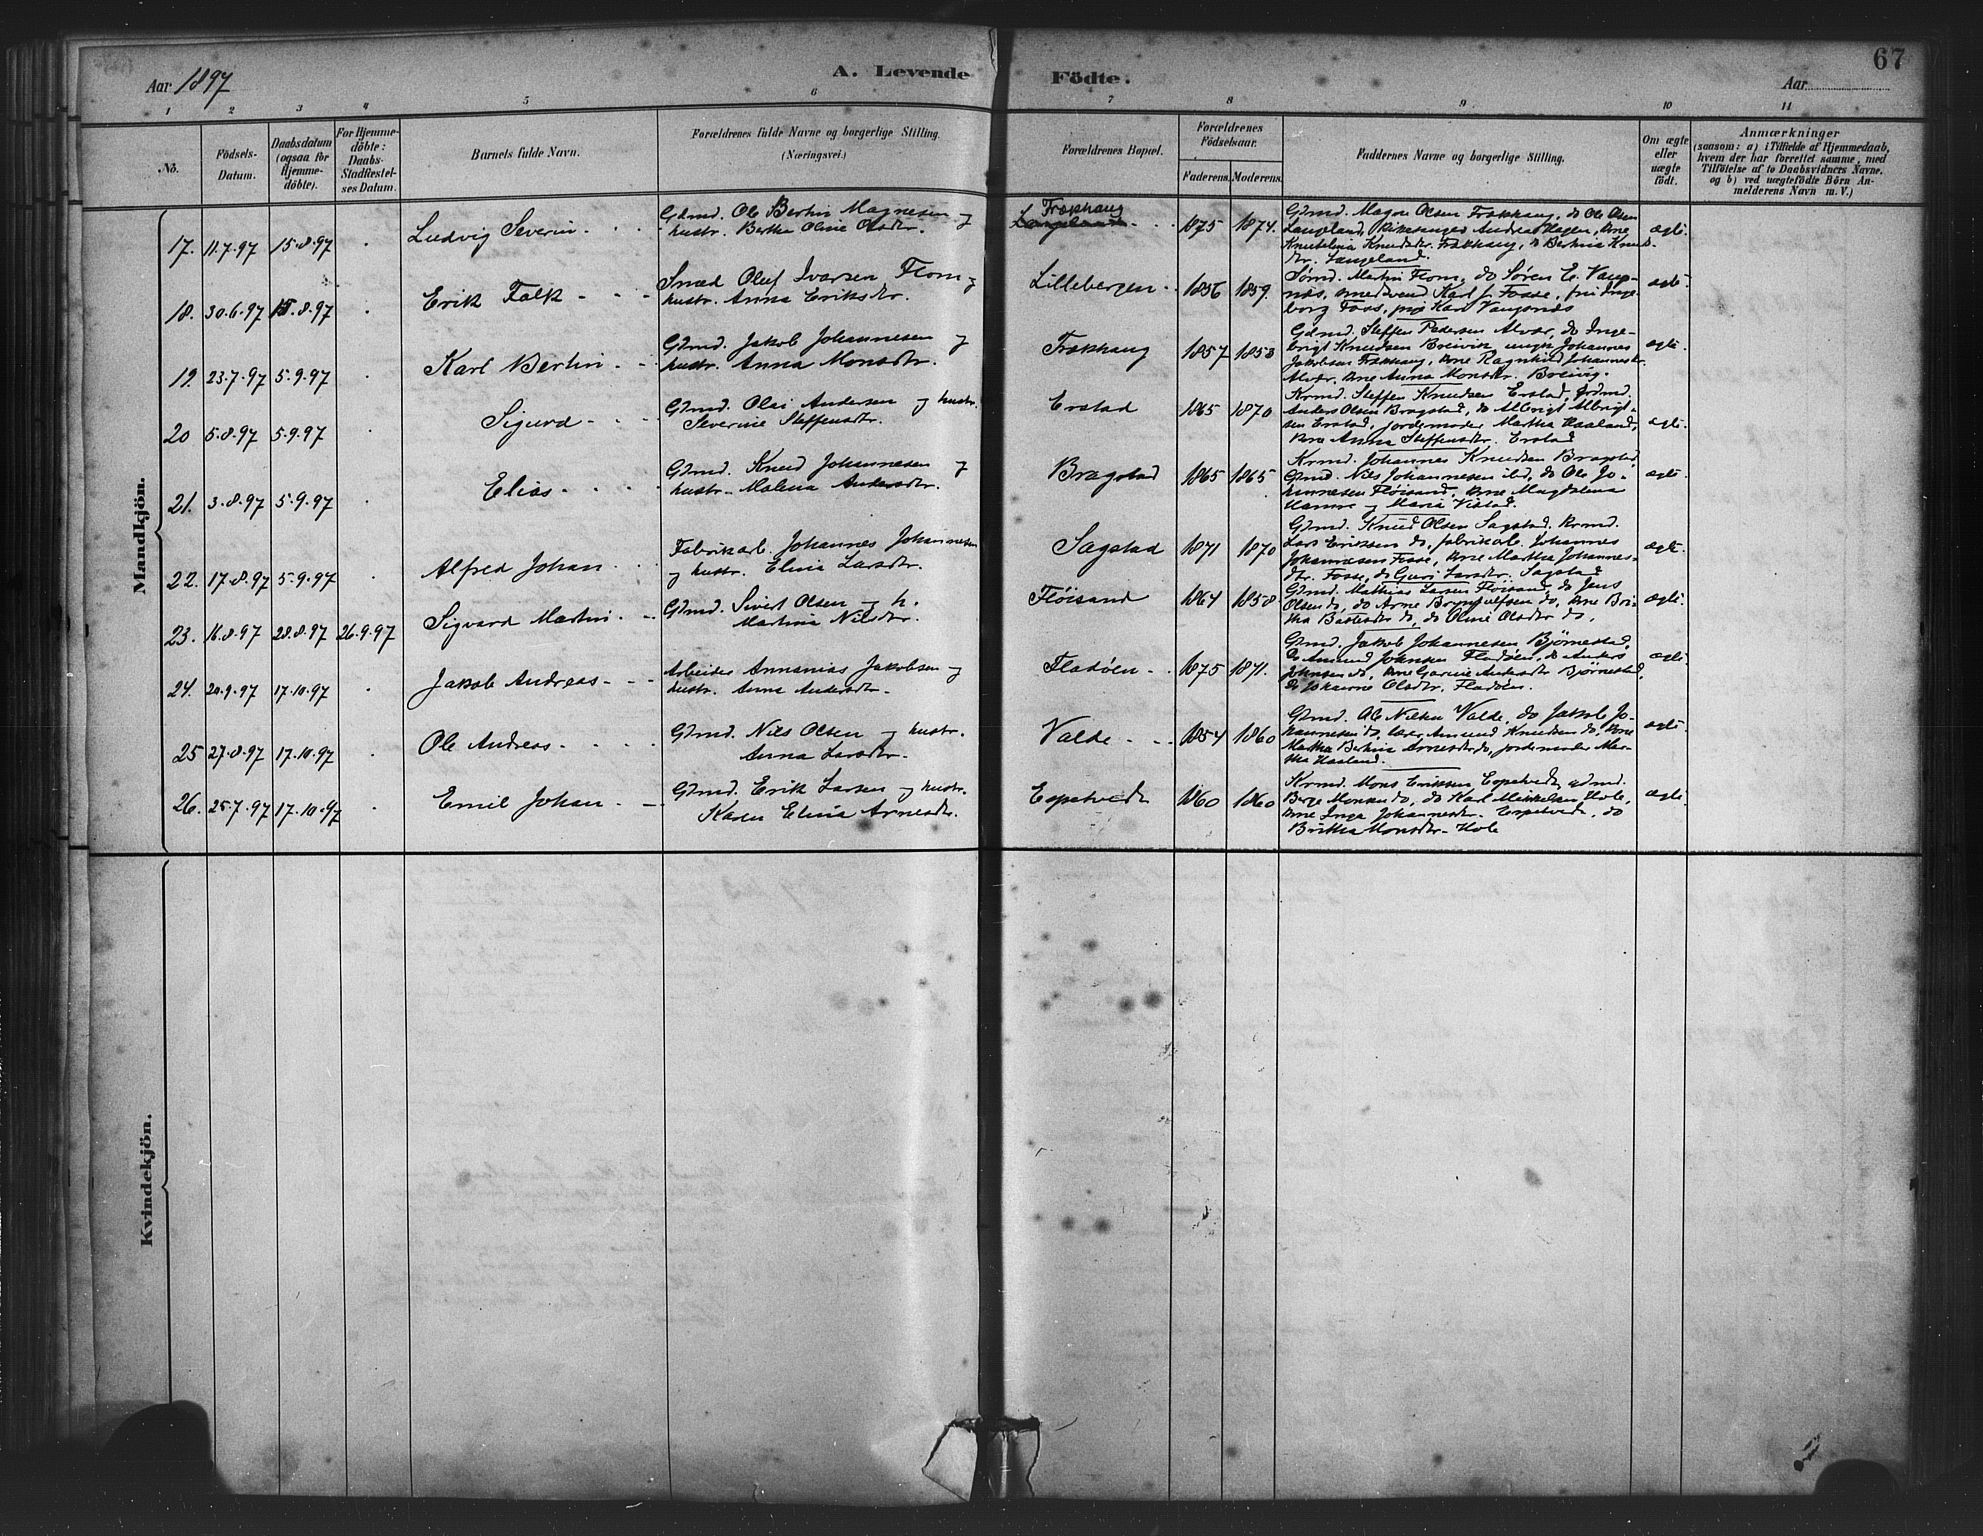 67
Aar 1897
A. Levende Födte.
Aar
1 2 3 4 5 6 7 8 9 10 11
No.
Födsels-Datum.
Daabsdatum (ogsaa for Hjemme-döbte).
For Hjemme-döbte: Daabs-Stadfæstel-ses Datum.
Barnets fulde Navn.
Forældrenes fulde Navne og borgerlige Stilling. (Næringsvei.)
Forældrenes Bopæl.
Forældrenes Födselsaar.
Faderens. Moderens.
Faddernes Navne og borgerlige Stilling.
Om ægte eller uægte födt.
Anmærkninger
(saasom: a) i Tilfælde af Hjemmedaab, hvem der har forrettet samme, med Tilföielse af to Daabsvidners Navne. og b) ved uægtefödte Börn Anmelderens Navn m. V.)
Mandkjön.
17. 11.7.97 15.8.97 Ludvig Severin Gdmd. Ole Bertin Magnesen og
hustr. Bertha Oline Olsdtr. Frækhaug Langeland 1875 1874. Gdmd. Magne Olsen Frækhaug, do Ole Olsen
Langeland, Andreas Hagen, kne
Knutelina Knudsdtr. Frækhaug, do Bertina Knuds-
dtr. Langeland. ægte.
18. 30.6.97 15.8.97 Erik Falk Smed Oluf Ivarsen Flom og
hustr. Anna Eriksdtr. Lillebergen 1856 1859. Martin Flom, do Søren E. Vangs-
næs, Karl J. Fosse, Inge-
borg Foss, pige Kari Vangsnæs ægte.
19. 23.7.97 5.9.97 Karl Bertin Gdmd. Jakob Johannesen og
hustr. Anna Monsdtr. Frækhaug 1857 1858 Gdmd. Steffen Pedersen Alvær, do Inge-
brigt Knudsen Breivik, ungk. Johannes
Jakobsen Frækhaug, kne Ragnhild Johannesdtr.
Alvær, kne Anna Monsdtr. Breivig. ægte.
20 5.8.97 5.9.97 Sigurd Gdmd. Olai Andersen og hustr.
Severine Steffensdtr. Erstad 1865 1870 Krmd. Steffen Knudsen Erstad, Grdmd.
Anders Olsen Bragstad, do Albrigt Albrigt-
sen Erstad, jordemoder Martha Haaland,
kne Anna Steffensdtr. Erstad ægte.
21. 3.8.97 5.9.97 Elias Gdmd. Knud Johannesen og
hustr. Malena Andersdtr. Bragstad 1865 1865 Krmd. Johannes Knudsen Bragstad,
Gdmd. Nils Johannesen ibd, do Ole Jo-
hannesen Fløisand, kne Magdalena
Hamre og Maria Vistad. ægte.
22. 17.8.97 5.9.97 Alfred Johan Fabrikarb. Johannes Johannesen
og hustr. Elina Larsdtr. Sagstad 1871 1870 Gdmd. Knud Olsen Sagstad. Krmd.
Lars Eriksen do, fabrikarb. Johannes
Johannesen Fosse, kne Martha Johannes-
dtr. Fosse, do Guri Larsdtr. Sagstad ægte.
23. 16.8.97 28.8.97 26.9.97 Sigvard Martin Gdmd. Sivert Olsen og h.
Martina Nilsdtr. Fløisand 1864 1858 Gdmd. Mathias Larsen Fløisand, do Jens
Olsen do, do Arne Brynjulfsen do, kne Bri-
tha do, do Oline Olsdtr do. ægte.
24. 20.9.97 17.10.97 Jakob Andreas Arbeider Annanias Jakobsen og
hustr. Anna Andersdtr. Fladöen 1875 1871. Gdmd. Jakob Johannesen Bjørnestad,
do Amund Johnsen Fladöen, do Anders
Johnsen do, kne Gurine Andersdtr Bjørnestad,
do Johanne Olsdtr. Fladöen. ægte.
25 27.8.97 17.10.97 Ole Andreas Gdmd. Nils Olsen og hustr.
Anna Larsdtr. Valde 1854 1860 Gdmd. Ole Nilsen Valde, do Jakob Jo-
hannesen do, Amund Knudsen do, kne
Martha Bertina Arnesdtr do, jordemoder Mar-
tha Haaland. ægte.
26. 25.7.97 17.10.97 Emil Johan Gdmd. Erik Larsen og hustr.
Karen Elina Arnesdtr. Espetvedt 1860 1860 Krmd. Mons Eriksen Espetvedt, gdmd.
Berge Monsen do, do Karl Mikkelsen Hole,
kne Inga Johannesdtr. Espetvedt, do
Britha Monsdtr. Hole ægte.
Kvindekjön.